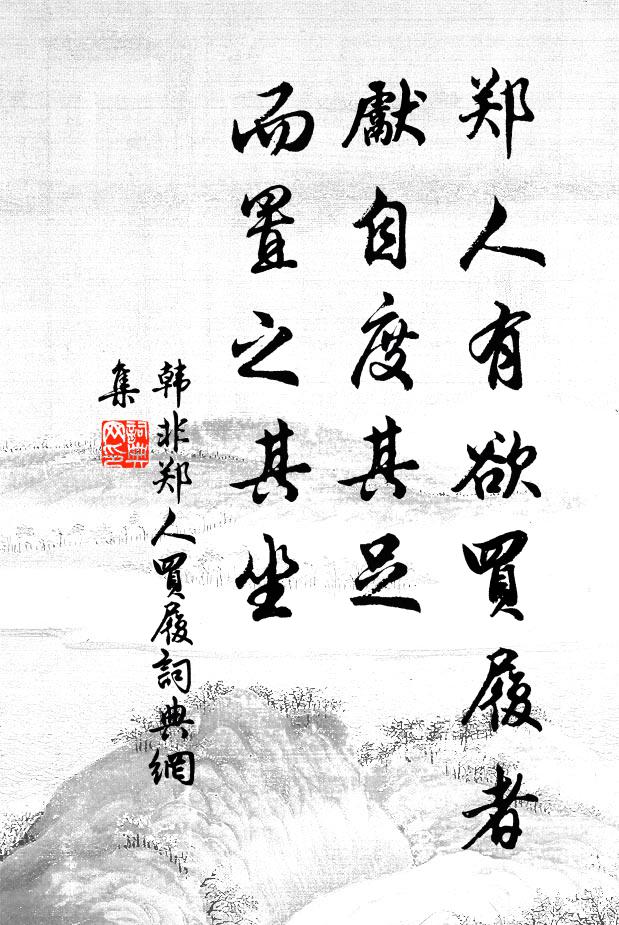 郑人有欲買履者
獻自度其足
而置之其坐
韩非郑人買履詞典網
集